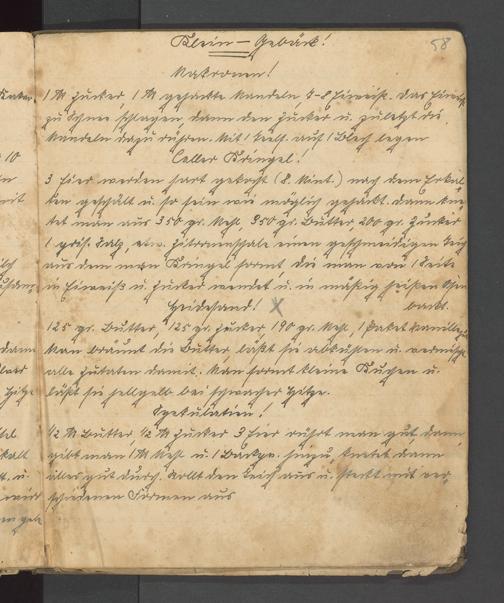 58
Klein-Gebäck!
Makronen!
1 ℔ Zucker, 1 ℔ gehackte Mandeln, 7-8 Eiweiß. Das Eiweiß
zu Schnee schlagen, dann den Zucker u. zuletzt die
Mandeln dazu rühren. Mit 1 Teelf. auf 1 Blech legen
Celler Kringel!
3 Eier werden hart gekocht (8. Mint.) nach dem Erkal-
ten geschält u. so fein wie möglich gehackt. dann kne-
tet man aus 350 gr. Mehl, 250 gr. Butter, 200 gr. Zucker
1 Salz, etw. Zitronenschale einen geschmeidigen Teig
aus dem man Kringel formt, die man von 1 Seite
in Eiweiß u. Zucker wendet u. in mäßig heißen Ofen
backt.
Heidesand! X
125 gr. Butter, 125 gr. Zucker 190 gr. Mehl, 1 Paket Vanille
Man bräunt die Butter, läßt sie abkühlen u. vermischt
alle Zutaten damit. Man formt kleine Kuchen u.
läßt sie hellgelb bei schwacher Hitze.
Spekulatien!
1/2 ℔ Butter, 1/2 ℔ Zucker 3 Eier rührt man gut dann
gibt man 1 ℔ Mehl u. 1 Backpv. hinzu, knetet dann
alles gut durch. rollt den Teig aus u. sticht mit ver
schiedenen Formen aus